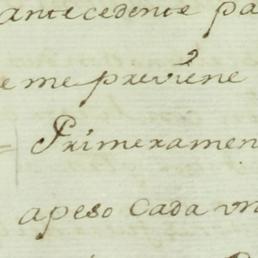 antecedente pa
e me previéne
Primeramen
apeso cada un